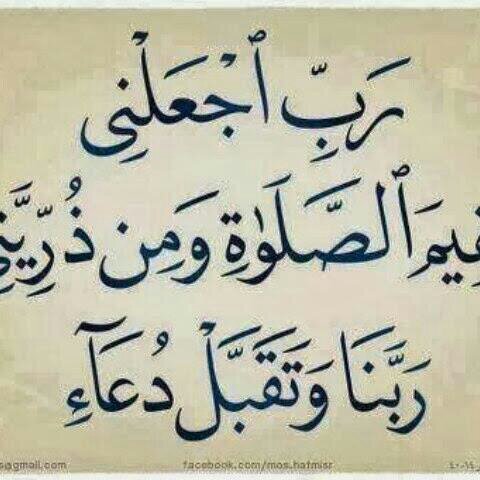 رَبِّ ٱجْعَلْنِى
قِيمَ ٱلصَّلَوٰةِ وَمِن ذُرِّيَّتِى
رَبَّنَا وَتَقَبَّلْ دُعَآءِ
s@gmail.com facebook.com/mos.hafmisr ٤٠-١٤